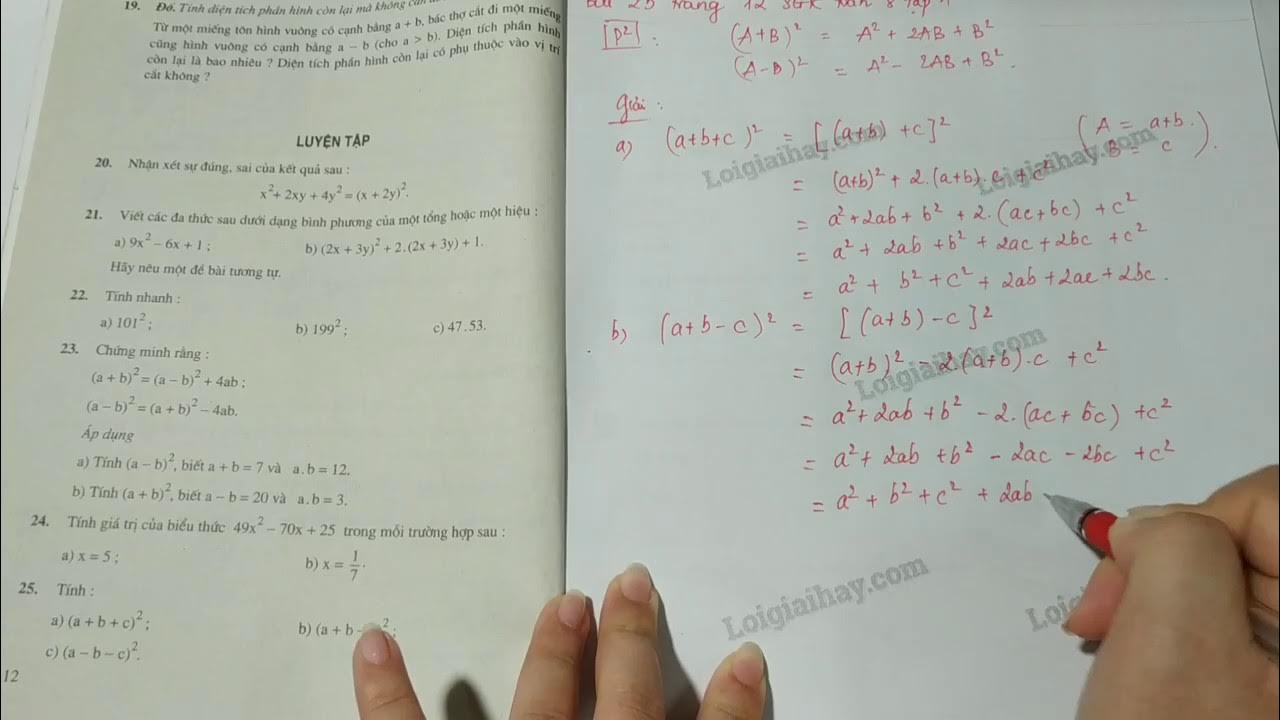 19. Đố. Tính diện tích phần hình còn lại mà không cần
Từ một miếng tôn hình vuông có cạnh bằng a + b, bác thợ cắt đi một miếng
cũng hình vuông có cạnh bằng a − b (cho a > b). Diện tích phần hình
còn lại là bao nhiêu ? Diện tích phần hình còn lại có phụ thuộc vào vị trí
cắt không ?
LUYỆN TẬP
20. Nhận xét sự đúng, sai của kết quả sau :
x² + 2xy + 4y² = (x + 2y)².
21. Viết các đa thức sau dưới dạng bình phương của một tổng hoặc một hiệu :
a) 9x² − 6x + 1 ; b) (2x + 3y)² + 2.(2x + 3y) + 1.
Hãy nêu một đề bài tương tự.
22. Tính nhanh :
a) 101² ; b) 199² ; c) 47.53.
23. Chứng minh rằng :
(a + b)² = (a − b)² + 4ab ;
(a − b)² = (a + b)² − 4ab.
Áp dụng
a) Tính (a − b)², biết a + b = 7 và a.b = 12.
b) Tính (a + b)², biết a − b = 20 và a.b = 3.
24. Tính giá trị của biểu thức 49x² − 70x + 25 trong mỗi trường hợp sau :
a) x = 5 ; b) x = 1/7.
25. Tính :
a) (a + b + c)² ; b) (a + b − ² ;
c) (a − b − c)².
12
Bài 25 trang 12 SGK Toán 8 tập 1
P² : (A+B)² = A² + 2AB + B²
(A-B)² = A² - 2AB + B².
Giải :
a) (a+b+c)² = [(a+b) + c]² (A = a+b.
B = c).
= (a+b)² + 2.(a+b).c + c²
= a² + 2ab + b² + 2.(ac+bc) + c²
= a² + 2ab + b² + 2ac + 2bc + c²
= a² + b² + c² + 2ab + 2ac + 2bc.
b) (a+b-c)² = [(a+b) - c]²
= (a+b)² - 2(a+b).c + c²
= a² + 2ab + b² - 2.(ac + bc) + c²
= a² + 2ab + b² - 2ac - 2bc + c²
= a² + b² + c² + 2ab
Loigiaihay.com
Loigiaihay.com
Loigiaihay.com
Loigiaihay.com